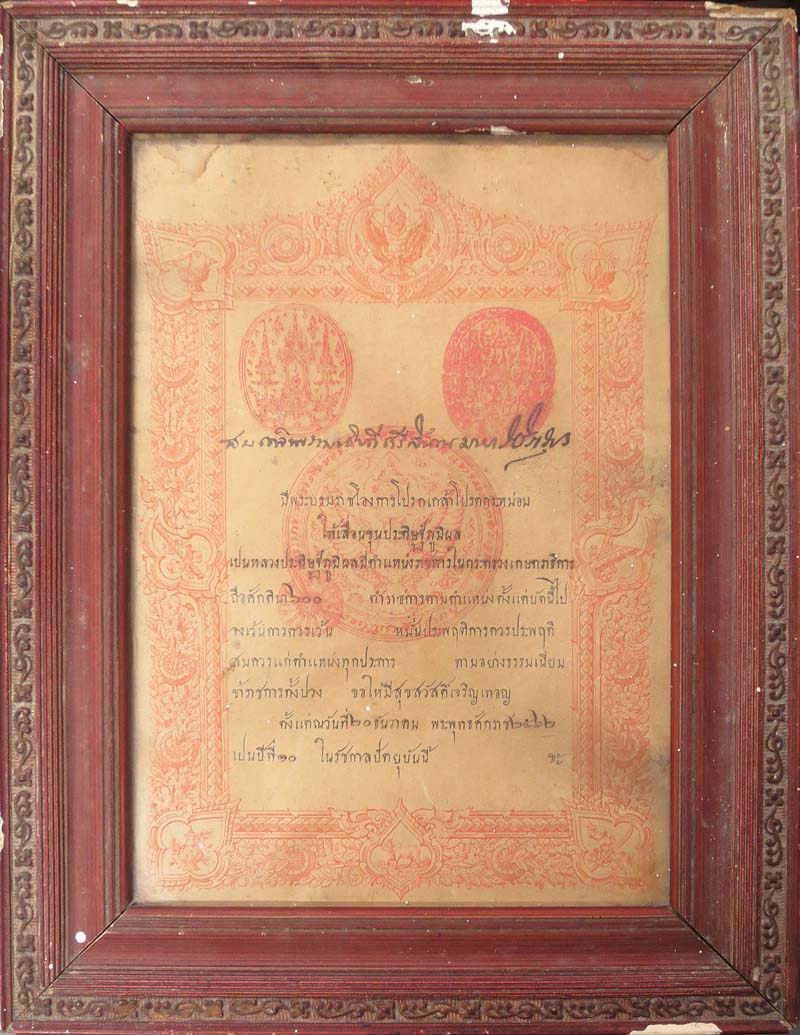 มีพระบรมราชโองการโปรดเกล้าโปรดกระหม่อม
ให้เลื่อนขุนประดิษฐ์ภูมิผล
เปนหลวงประดิษฐ์ภูมิผลมีตำแหน่งราชการในกระทรวงเกษตราธิการ
ถือศักดินา๖๐๐ ทำราชการตามตำแหน่งตั้งแต่บัดนี้ไป
จงเว้นการควรเว้น หมั่นประพฤติการควรประพฤติ
สมควรแก่ตำแหน่งทุกประการ ตามอย่างธรรมเนียม
ข้าราชการทั้งปวง ขอให้มีสุขสวัสดิ์เจริญเทอญ
ตั้งแต่ณวันที่๒๐ธันวาคม พระพุทธศักราช๒๔๖๒
เปนปีที่๑๐ ในรัชกาลปัตยุบันนี้ ฯะ